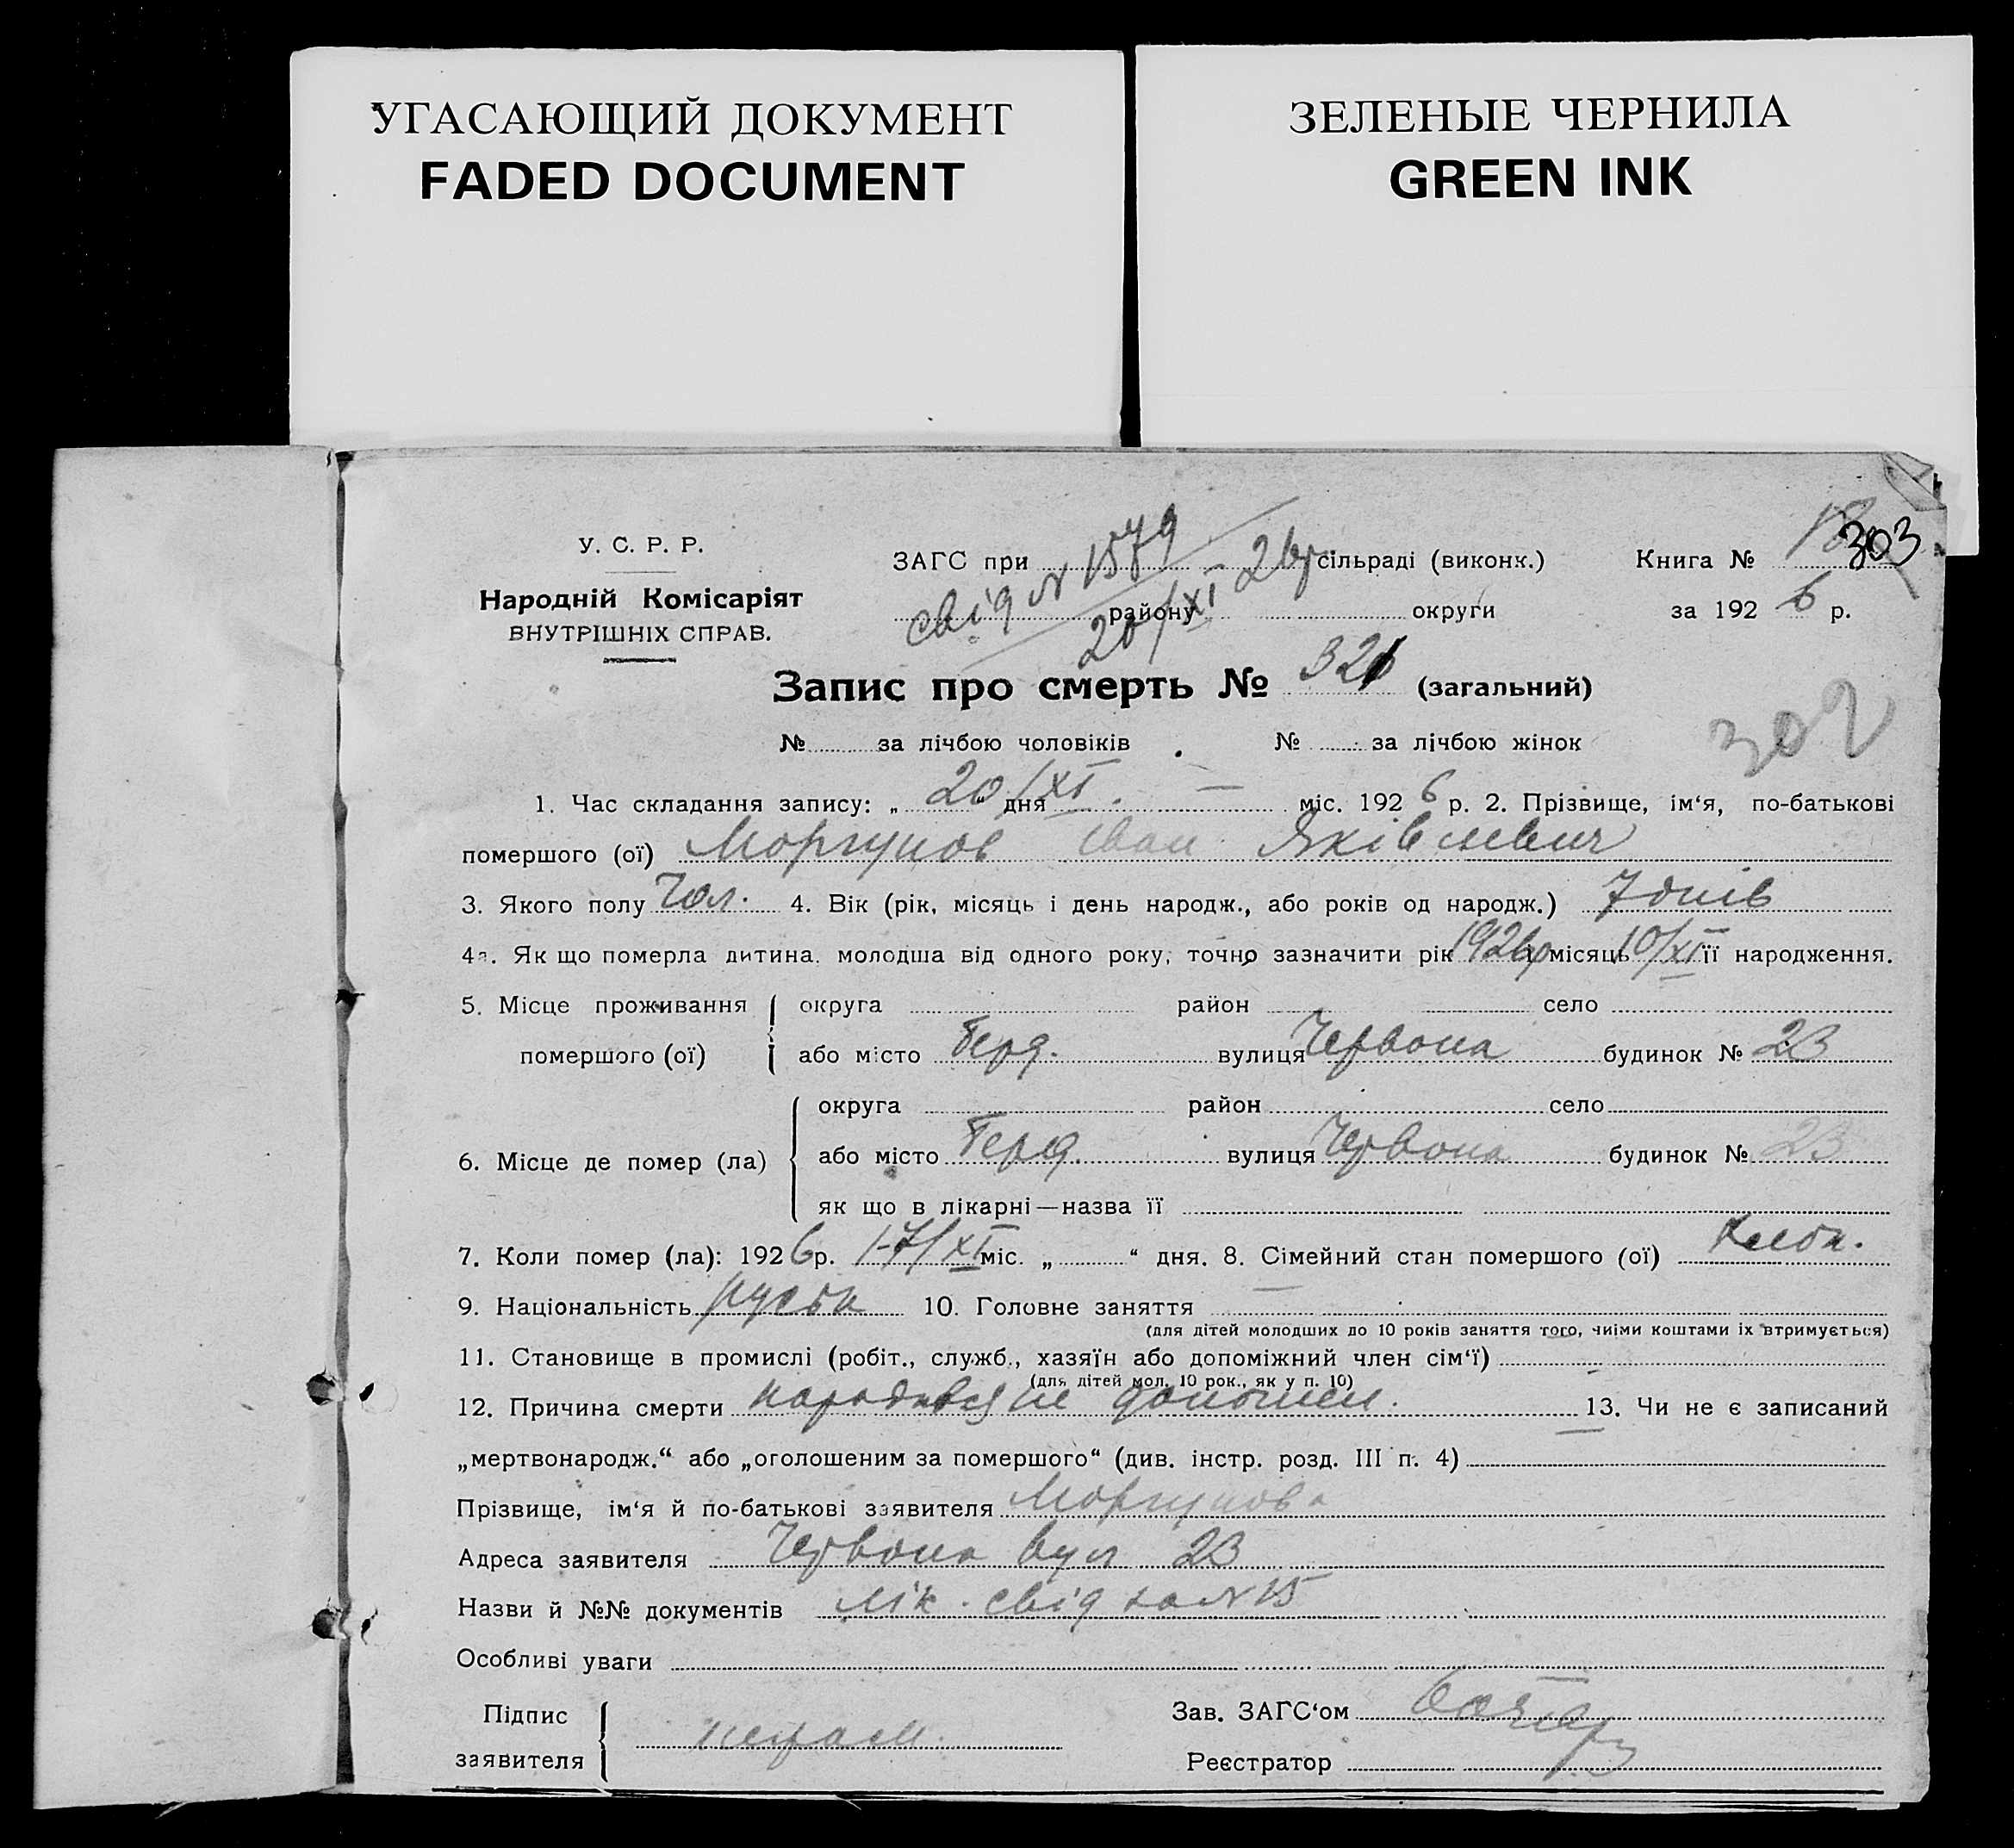 УГАСАЮЩИЙ ДОКУМЕНТ
FADED DOCUMENT
ЗЕЛЕНЫЕ ЧЕРНИЛА
GREEN INK
303
У. С. Р. Р.
Народній Комісаріят
ВНУТРІШНІХ СПРАВ.
ЗАГС при сільраді (виконк.)
району округи
свід N 1579
20/XI 26р
Книга № 18
за 192 6 р.
Запис про смерть № 321 (загальний)
302
№ за лічбою чоловіків № за лічбою жінок
1. Час складання запису: „ 20/XI " дня — міс. 192 6 р. 2. Прізвище, ім'я, по-батькові
помершого (ої) Моргунов Іван Яківлевич
3. Якого полу Чол. 4. Вік (рік, місяць і день народж., або років од народж.) 7 днів
4а. Як що померла дитина молодша від одного року, точно зазначити рік 1926р і місяць 10/XI її народження.
5. Місце проживання помершого (ої) округа район село
або місто Берд. вулиця Червона будинок № 23
6. Місце де помер (ла) округа район село
або місто Берд. вулиця Червона будинок № 23
як що в лікарні—назва її
7. Коли помер (ла): 192 6 р. 17/XI міс. „ “ дня. 8. Сімейний стан помершого (ої)
9. Національність 10. Головне заняття —
(для дітей молодших до 10 років заняття того, чиїми коштами їх втримується)
11. Становище в промислі (робіт., служб., хазяїн або допоміжний член сім'ї)
(для дітей мол. 10 рок., як у п. 10)
12. Причина смерти народився не доношен. 13. Чи не є записаний
„мертвонародж.“ або „оголошеним за помершого“ (див. інстр. розд. III п. 4) —
Прізвище, ім'я й по-батькові заявителя Моргунова
Адреса заявителя Червона вул 23
Назви й №№ документів лік. свід за N 15
Особливі уваги
Підпис заявителя неграм.
Зав. ЗАГС'ом
Реєстратор